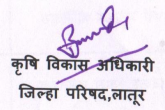 कृषि विकास अधिकारी
जिल्हा परिषद,लातूर